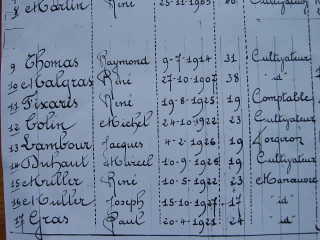 8 Martin René 25-11-1905 40 Cultivateur
9 Thomas Raymond 9-7-1914 31 Cultivateur
10 Malgras René 27-10-1907 38 -id-
11 Fixaris René 19-8-1925 19 Comptable
12 Colin Michel 24-10-1922 23 Cultivateur
13 Lambour Jacques 4-2-1926 19 Forgeron
14 Duhaut Marcel 10-9-1926 19 Cultivateur
15 Muller René 10-5-1922 23 Manœuvre
16 Muller Joseph 15-10-1927 17 -id-
17 Gras Paul 20-4-1921 24 -id-